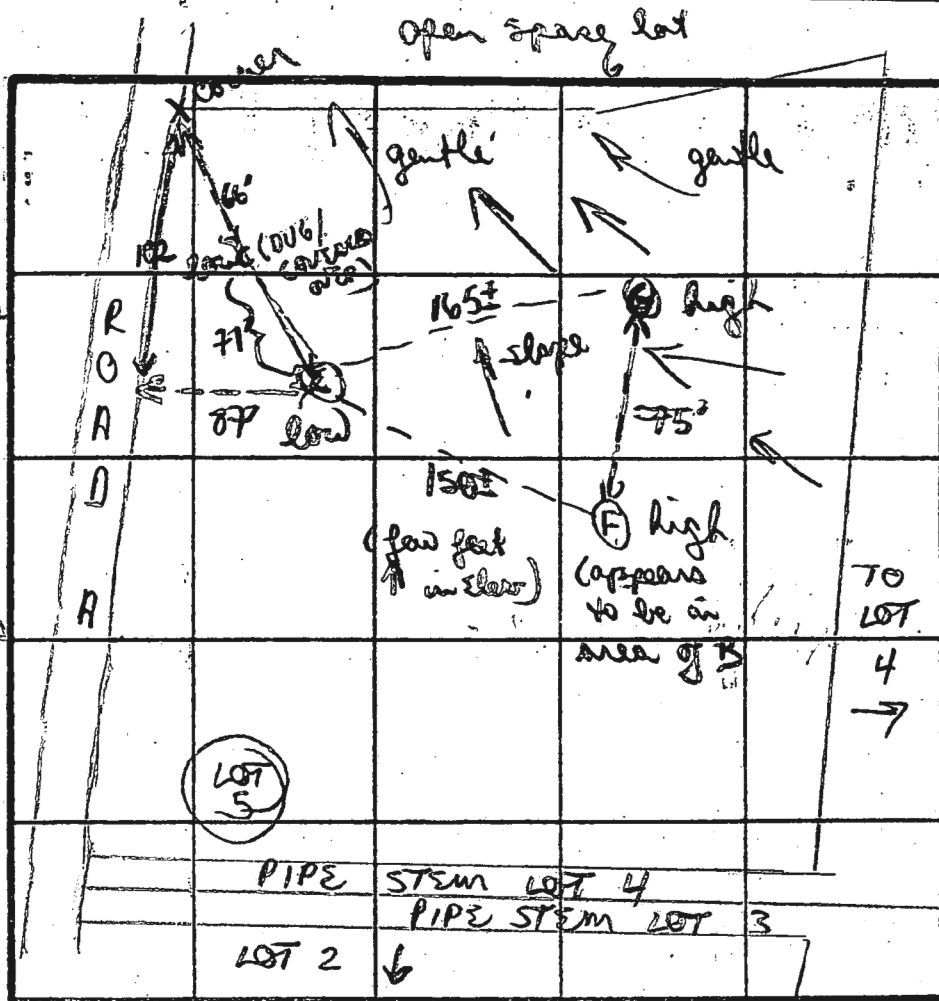 open space lot
corner
gentle
gentle
66'
102
(DUG/
165±
high
77'
slope
87'
low
75'
R
O
A
D
A
150±
F
high
(few feet
in Elev)
(appears
to be in
area of B
TO
LOT
4
LOT
5
PIPE STEM LOT 4
PIPE STEM LOT 3
LOT 2